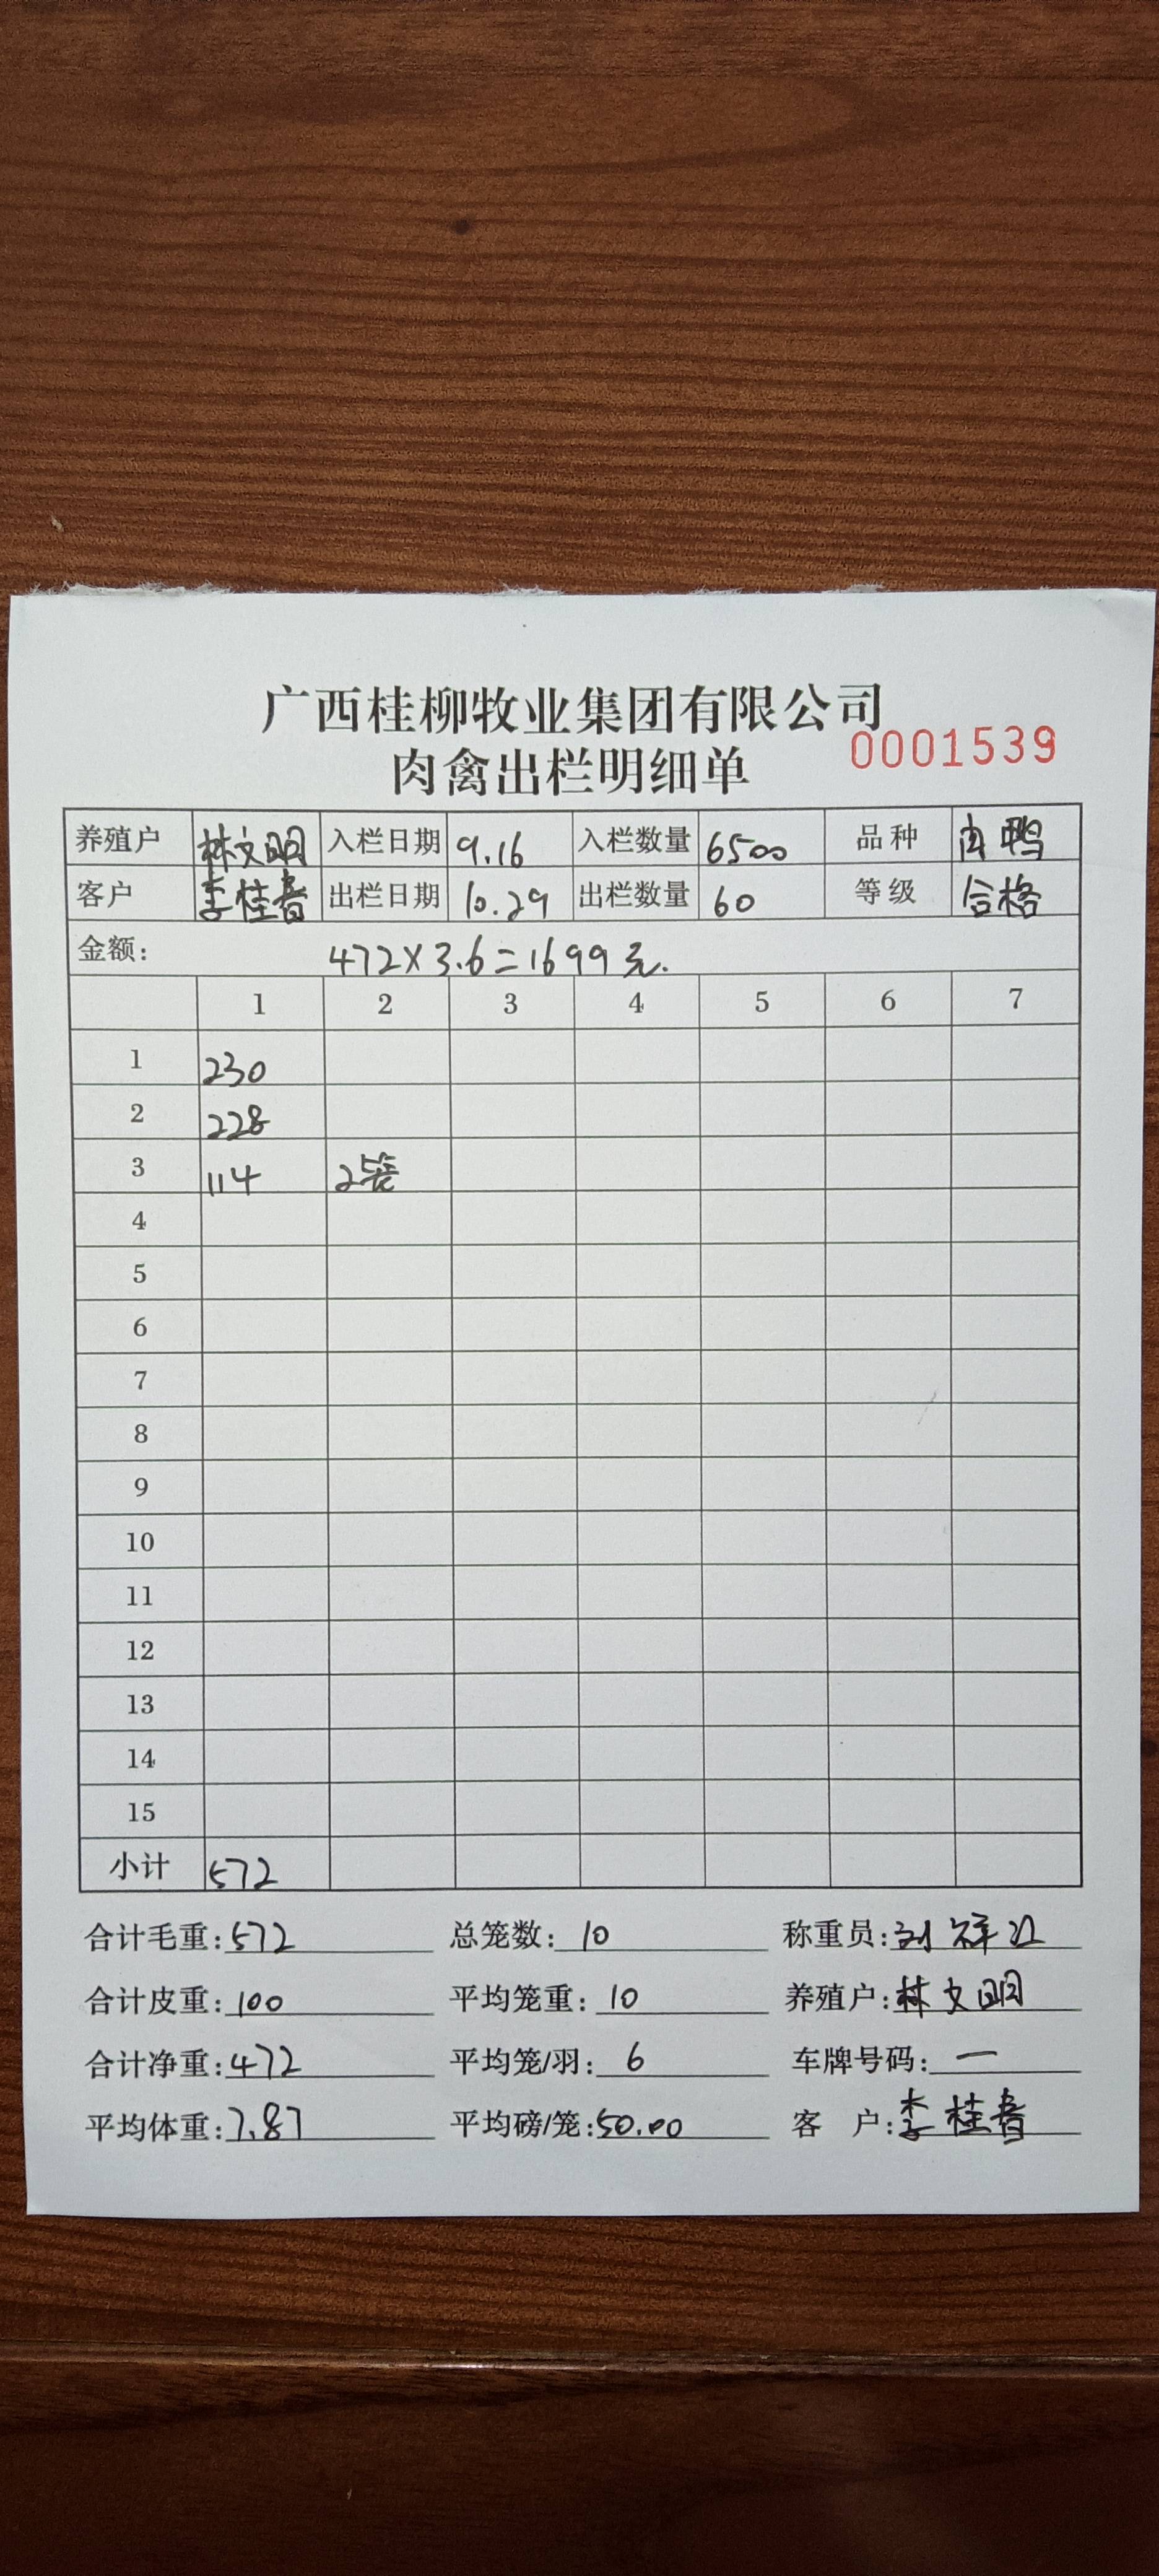 广西桂柳牧业集团有限公司
肉禽出栏明细单 0001539
养殖户 林文明 入栏日期 9.16 入栏数量 6500 品种 肉鸭
客户 李桂香 出栏日期 10.29 出栏数量 60 等级 合格
金额: 472×3.6=1699元.
1 2 3 4 5 6 7
1 230
2 228
3 114 2笼
4
5
6
7
8
9
10
11
12
13
14
15
小计 572
合计毛重: 572 总笼数: 10 称重员: 刘祥江
合计皮重: 100 平均笼重: 10 养殖户: 林文明
合计净重: 472 平均笼/羽: 6 车牌号码: 一
平均体重: 7.87 平均磅/笼: 50.00 客 户: 李桂香